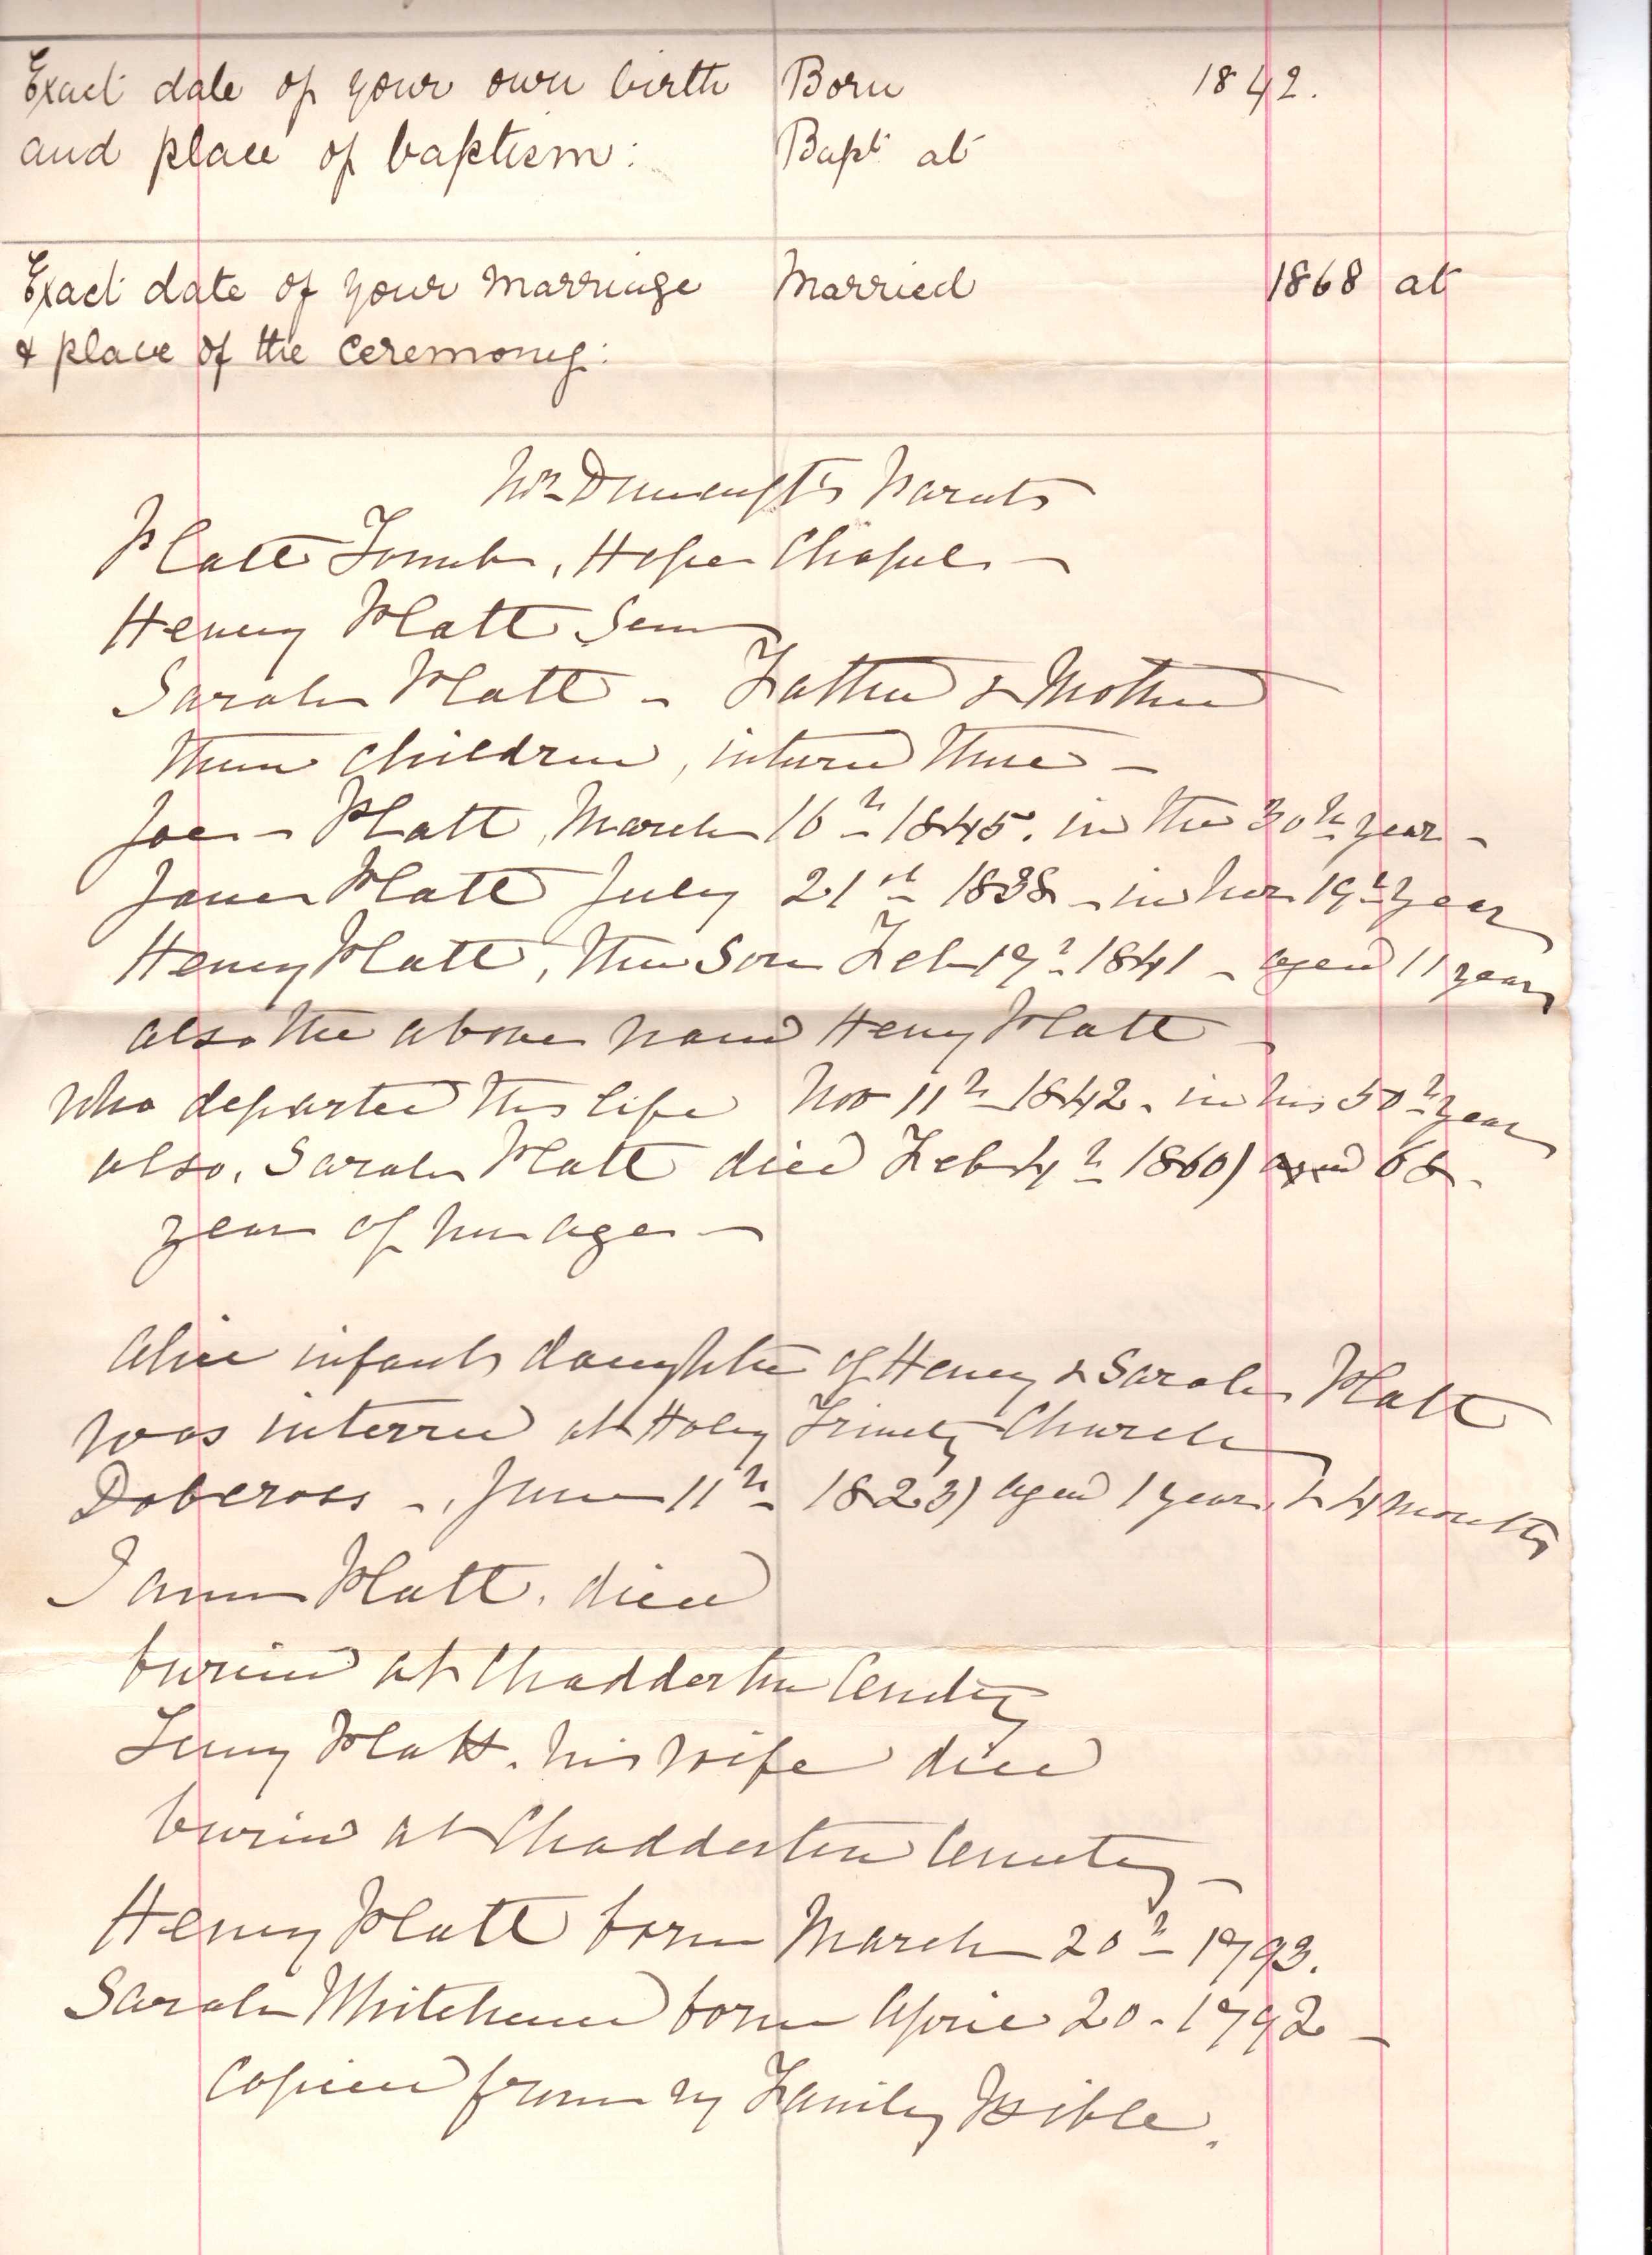 Exact date of your own birth Born 1842.
and place of baptism: Bapt at
Exact date of your marriage Married 1868 at
& place of the ceremony:
Parents
Platt Tomb, Hope Chapel -
Henry Platt Senr
Sarah Platt - Father & Mother
children, there -
Joe - Platt, March 16th 1845. in the 30th year -
Jane Platt July 21st 1838 - in her 19th year
Henry Platt, their Son Feb 17th 1841 - aged 11 years
also the above named Henry Platt -
who departed this life Nov 11th 1842 - in his 50th year
also, Sarah Platt died Feb 4th 1860) 68 -
year of her age -
Alice infant daughter of Henry & Sarah Platt
was interred at Holy Trinity Church
Dobcross -, June 11th 1823) aged 1 year & 4 months
Platt. died
buried at Chadderton Cemetery
Platt. his wife died
buried at Chadderton Cemetery -
Henry Platt born March 20th 1793.
Sarah Whitehead born April 20 - 1792 -
Copied from my Family Bible.